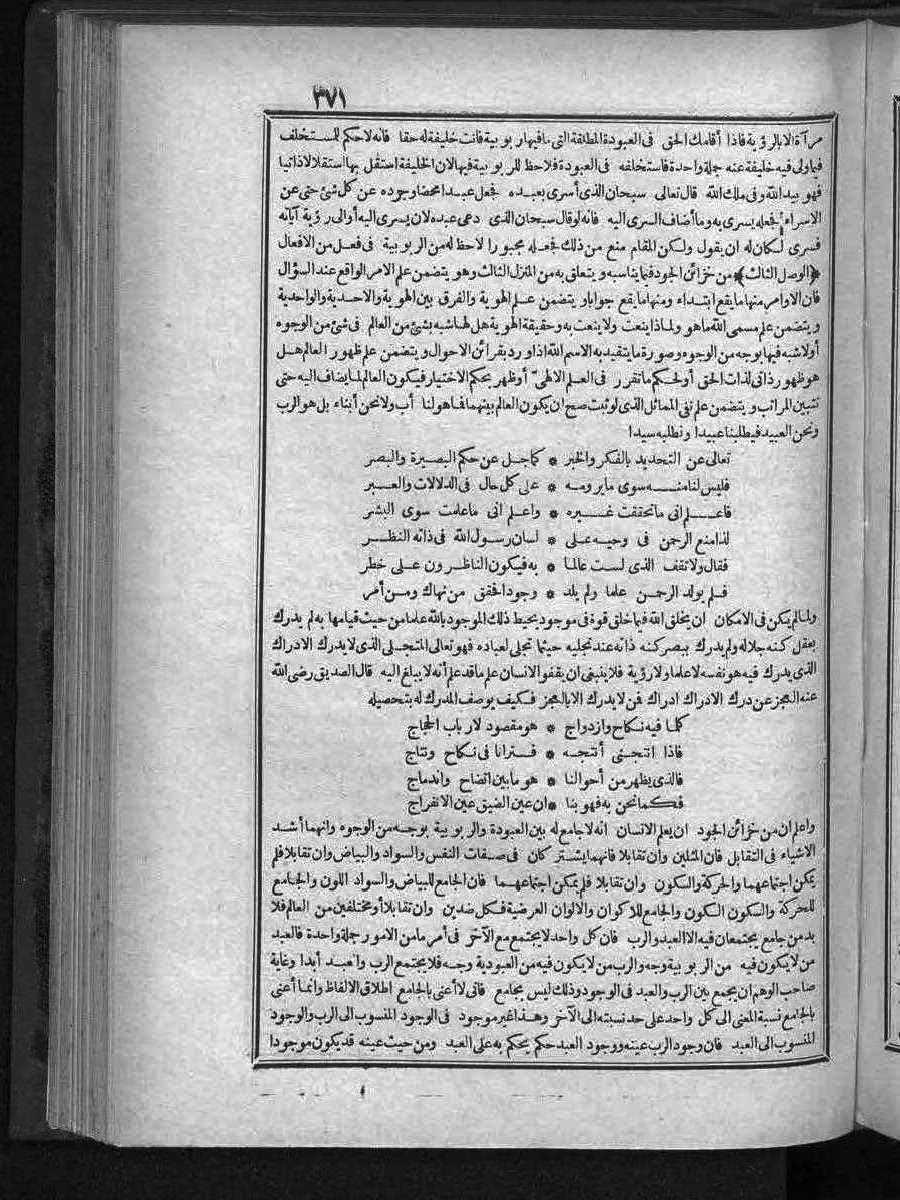 ٣٧١
مرآة الابالرؤية فاذا أقامك الحق في العبودة المطلقة التي ما فيها ربوبية فانت خليفة له حقا فانه لا حكم للمستخلف
فيما ولى فيه خليفة عنه جملة واحدة فاستخلفه في العبودة فلا حظ للربوبية فيها لان الخليفة استقل بها استقلالا ذاتيا
فهو بيد الله وفي ملك الله قال تعالى سبحان الذي أسرى بعبده فجعل عبدا محضا وجرده عن كل شئ حتى عن
الاسراء فجعله يسرى به وما أضاف السرى اليه فانه لو قال سبحان الذي دعى عبده لان يسرى اليه أو الى رؤية آياته
فسرى لكان له ان يقول ولكن المقام منع من ذلك فجعله مجبورا لا حظ له من الربوبية في فعل من الافعال
﴿الوصل الثالث﴾ من خزائن الجود فيما يناسبه ويتعلق به من المنزل الثالث وهو يتضمن علم الامر الواقع عند السؤال
فان الاوامر منها ما يقع ابتداء ومنها ما يقع جوابا ويتضمن علم الهوية والفرق بين الهوية والاحدية والواحدية
ويتضمن علم مسمى الله ما هو ولماذا ينعت ولا ينعت به وحقيقة الهوية هل لها شبه بشئ من العالم في شئ من الوجوه
أو لا شبه فيها بوجه من الوجوه وصورة ما يتقيد به الاسم الله اذا ورد بقرائن الاحوال ويتضمن علم ظهور العالم هل
هو ظهور ذاتي لذات الحق أو لحكم ما تقرر في العلم الالهي أو ظهر بحكم الاختيار فيكون العالم لما يضاف اليه حتى
تتبين المراتب ويتضمن علم نفي المماثل الذي لو ثبت صح ان يكون العالم بينهما فما هو لنا أب ولا نحن أبناء بل هو الرب
ونحن العبيد فيطلبنا عبيدا ونطلبه سيدا
تعالى عن التحديد بالفكر والخبر * كما جل عن حكم البصيرة والبصر
فليس لنا منه سوى ما يرومه * على كل حال في الدلالات والعبر
فاعلم اني ما تحققت غيره * واعلم اني ما علمت سوى البشر
لذا منع الرحمن في وحيه على * لسان رسول الله في ذاته النظر
فقال ولا تقف الذي لست عالما * به فيكون الناظرون على خطر
فلم يولد الرحمن علما ولم يلد * وجودا فحقق من نهاك ومن أمر
ولما لم يكن في الامكان ان يخلق الله فيما خلق قوة في موجود يحيط ذلك الموجود بالله علما من حيث قيامها به لم يدرك
بعقل كنه جلاله ولم يدرك ببصر كنه ذاته عند تجليه حيثما تجلى لعباده فهو تعالى المتجلى الذي لا يدرك الادراك
الذي يدرك فيه هو نفسه لا علما ولا رؤية فلا ينبغي ان يقفو الانسان علم ما قد علم أنه لا يبلغ اليه قال الصديق رضى الله
عنه العجز عن درك الادراك ادراك فمن لا يدرك الا بالعجز فكيف يوصف المدرك له بتحصيله
كلما فيه نكاح وازدواج * هو مقصود لارباب الحجاج
فاذا انتجنى أنتجه * فترانا في نكاح ونتاج
فالذي يظهر من أحوالنا * هو ما بين اتضاح واندماج
فكما نحن به فهو بنا * ان عين الضيق عين الانفراج
واعلم ان من خزائن الجود ان يعلم الانسان انه لا جامع له بين العبودة والربوبية بوجه من الوجوه وانهما أشد
الاشياء في التقابل فان المثلين وان تقابلا فانهما يشتركان في صفات النفس والسواد والبياض وان تقابلا فلم
يمكن اجتماعهما والحركة والسكون وان تقابلا فلم يمكن اجتماعهما فان الجامع للبياض والسواد اللون والجامع
للحركة والسكون السكون والجامع للاكوان والالوان العرضية فكل ضدين وان تقابلا أو مختلفين من العالم فلا
بد من جامع يجتمعان فيه الا العبد والرب فان كل واحد لا يجتمع مع الآخر في أمر ما من الامور جملة واحدة فالعبد
من لا يكون فيه من الربوبية وجه والرب من لا يكون فيه من العبودية وجه فلا يجتمع الرب والعبد أبدا وغاية
صاحب الوهم ان يجمع بين الرب والعبد في الوجود وذلك ليس بجامع فاني لا أعني بالجامع اطلاق الالفاظ وانما أعني
بالجامع نسبة المعنى الى كل واحد على حد نسبته الى الآخر وهذا غير موجود في الوجود المنسوب الى الرب والوجود
المنسوب الى العبد فان وجود الرب عينه ووجود العبد حكم يحكم به على العبد ومن حيث عينه قد يكون موجودا